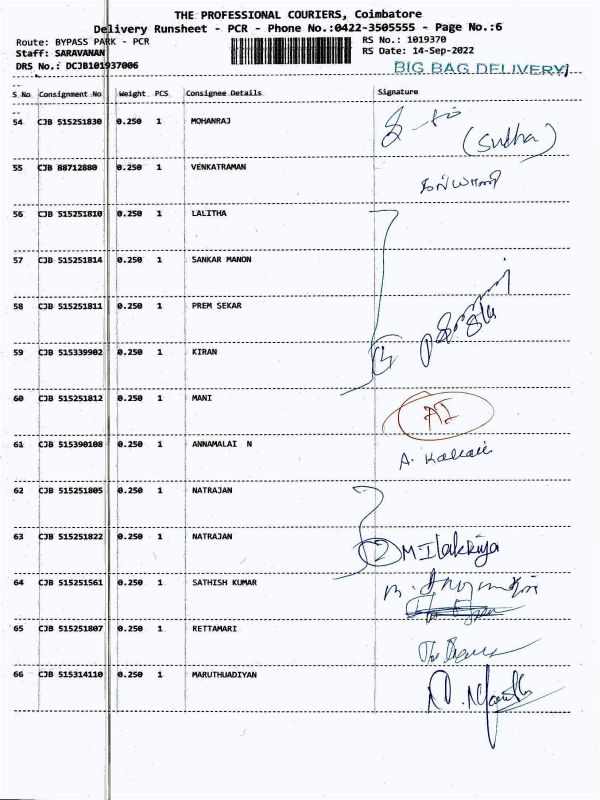 THE PROFESSIONAL COURIERS, Coimbatore
Delivery Runsheet - PCR - Phone No.:0422-3505555 - Page No.:6
Route: BYPASS PARK - PCR RS No.: 1019370
Staff: SARAVANAN RS Date: 14-Sep-2022
DRS No.: DCJB101937006 BIG BAG DELIVERY
S No Consignment No Weight PCS Consignee Details Signature
54 CJB 515251830 0.250 1 MOHANRAJ
(Sudha)
55 CJB 88712880 0.250 1 VENKATRAMAN
56 CJB 515251810 0.250 1 LALITHA
57 CJB 515251814 0.250 1 SANKAR MANON
58 CJB 515251811 0.250 1 PREM SEKAR
59 CJB 515339902 0.250 1 KIRAN
60 CJB 515251812 0.250 1 MANI AI
61 CJB 515390108 0.250 1 ANNAMALAI N A.
62 CJB 515251805 0.250 1 NATRAJAN
63 CJB 515251822 0.250 1 NATRAJAN 2 M Ilakkiya
64 CJB 515251561 0.250 1 SATHISH KUMAR
65 CJB 515251807 0.250 1 RETTAMARI
66 CJB 515314110 0.250 1 MARUTHUADIYAN